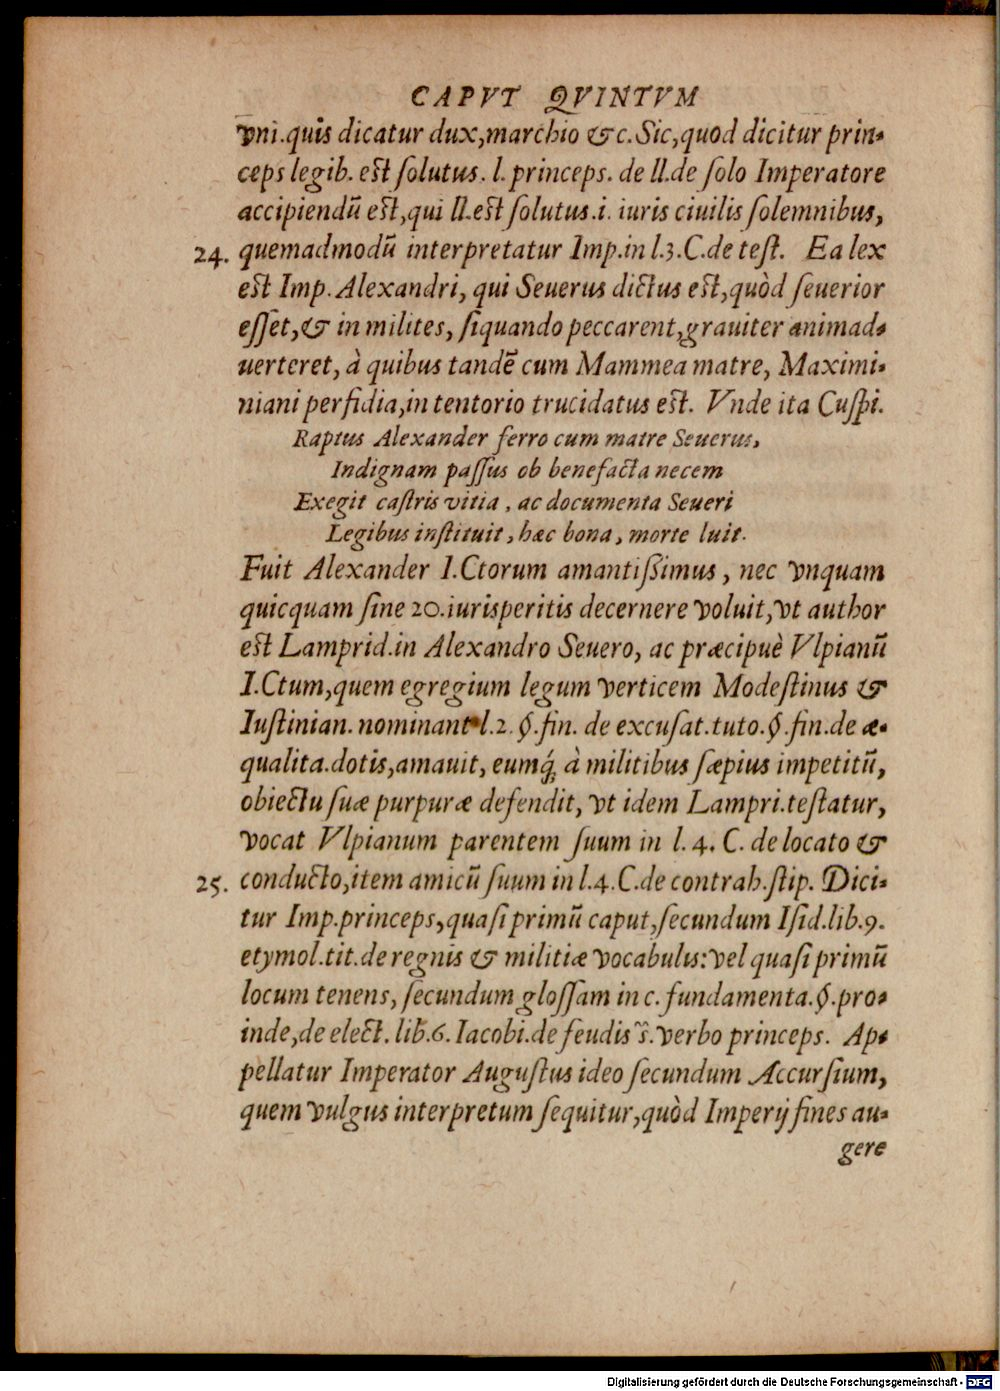 CAPVT QVINTVM
vni.quis dicatur dux,marchio &c. Sic,quod dicitur prin-
ceps legib. est solutus. l. princeps. de ll.de solo Imperatore
accipiendū est,qui ll.est solutus.i. iuris ciuilis solemnibus,
24. quemadmodū interpretatur Imp.in l.3.C.de test. Ea lex
est Imp. Alexandri, qui Seuerus dictus est,quòd seuerior
esset,& in milites, siquando peccarent,grauiter animad-
uerteret, à quibus tandē cum Mammea matre, Maximi-
niani perfidia,in tentorio trucidatus est. Vnde ita Cuspi.
Raptus Alexander ferro cum matre Seuerus,
Indignam passus ob benefacta necem
Exegit castris vitia, ac documenta Seueri
Legibus instituit, hæc bona, morte luit.
Fuit Alexander I.Ctorum amantissimus, nec vnquam
quicquam sine 20.iurisperitis decernere voluit,vt author
est Lamprid.in Alexandro Seuero, ac præcipuè Vlpianū
I.Ctum,quem egregium legum verticem Modestinus &
Iustinian. nominant l.2. §.fin. de excusat.tuto.§.fin.de æ-
qualita.dotis,amauit, eumq́; à militibus sæpius impetitū,
obiectu suæ purpuræ defendit, vt idem Lampri.testatur,
vocat Vlpianum parentem suum in l. 4. C. de locato &
25. conducto,item amicū suum in l.4.C.de contrah.stip. Dici-
tur Imp.princeps,quasi primū caput,secundum Isid.lib.9.
etymol.tit.de regnis & militiæ vocabulis:vel quasi primū
locum tenens, secundum glossam in c. fundamenta.§.pro-
inde,de elect. lib.6. Iacobi.de feudis s̃. verbo princeps. Ap-
pellatur Imperator Augustus ideo secundum Accursium,
quem vulgus interpretum sequitur,quòd Imperij fines au-
gere
Digitalisierung gefördert durch die Deutsche Forschungsgemeinschaft - DFG